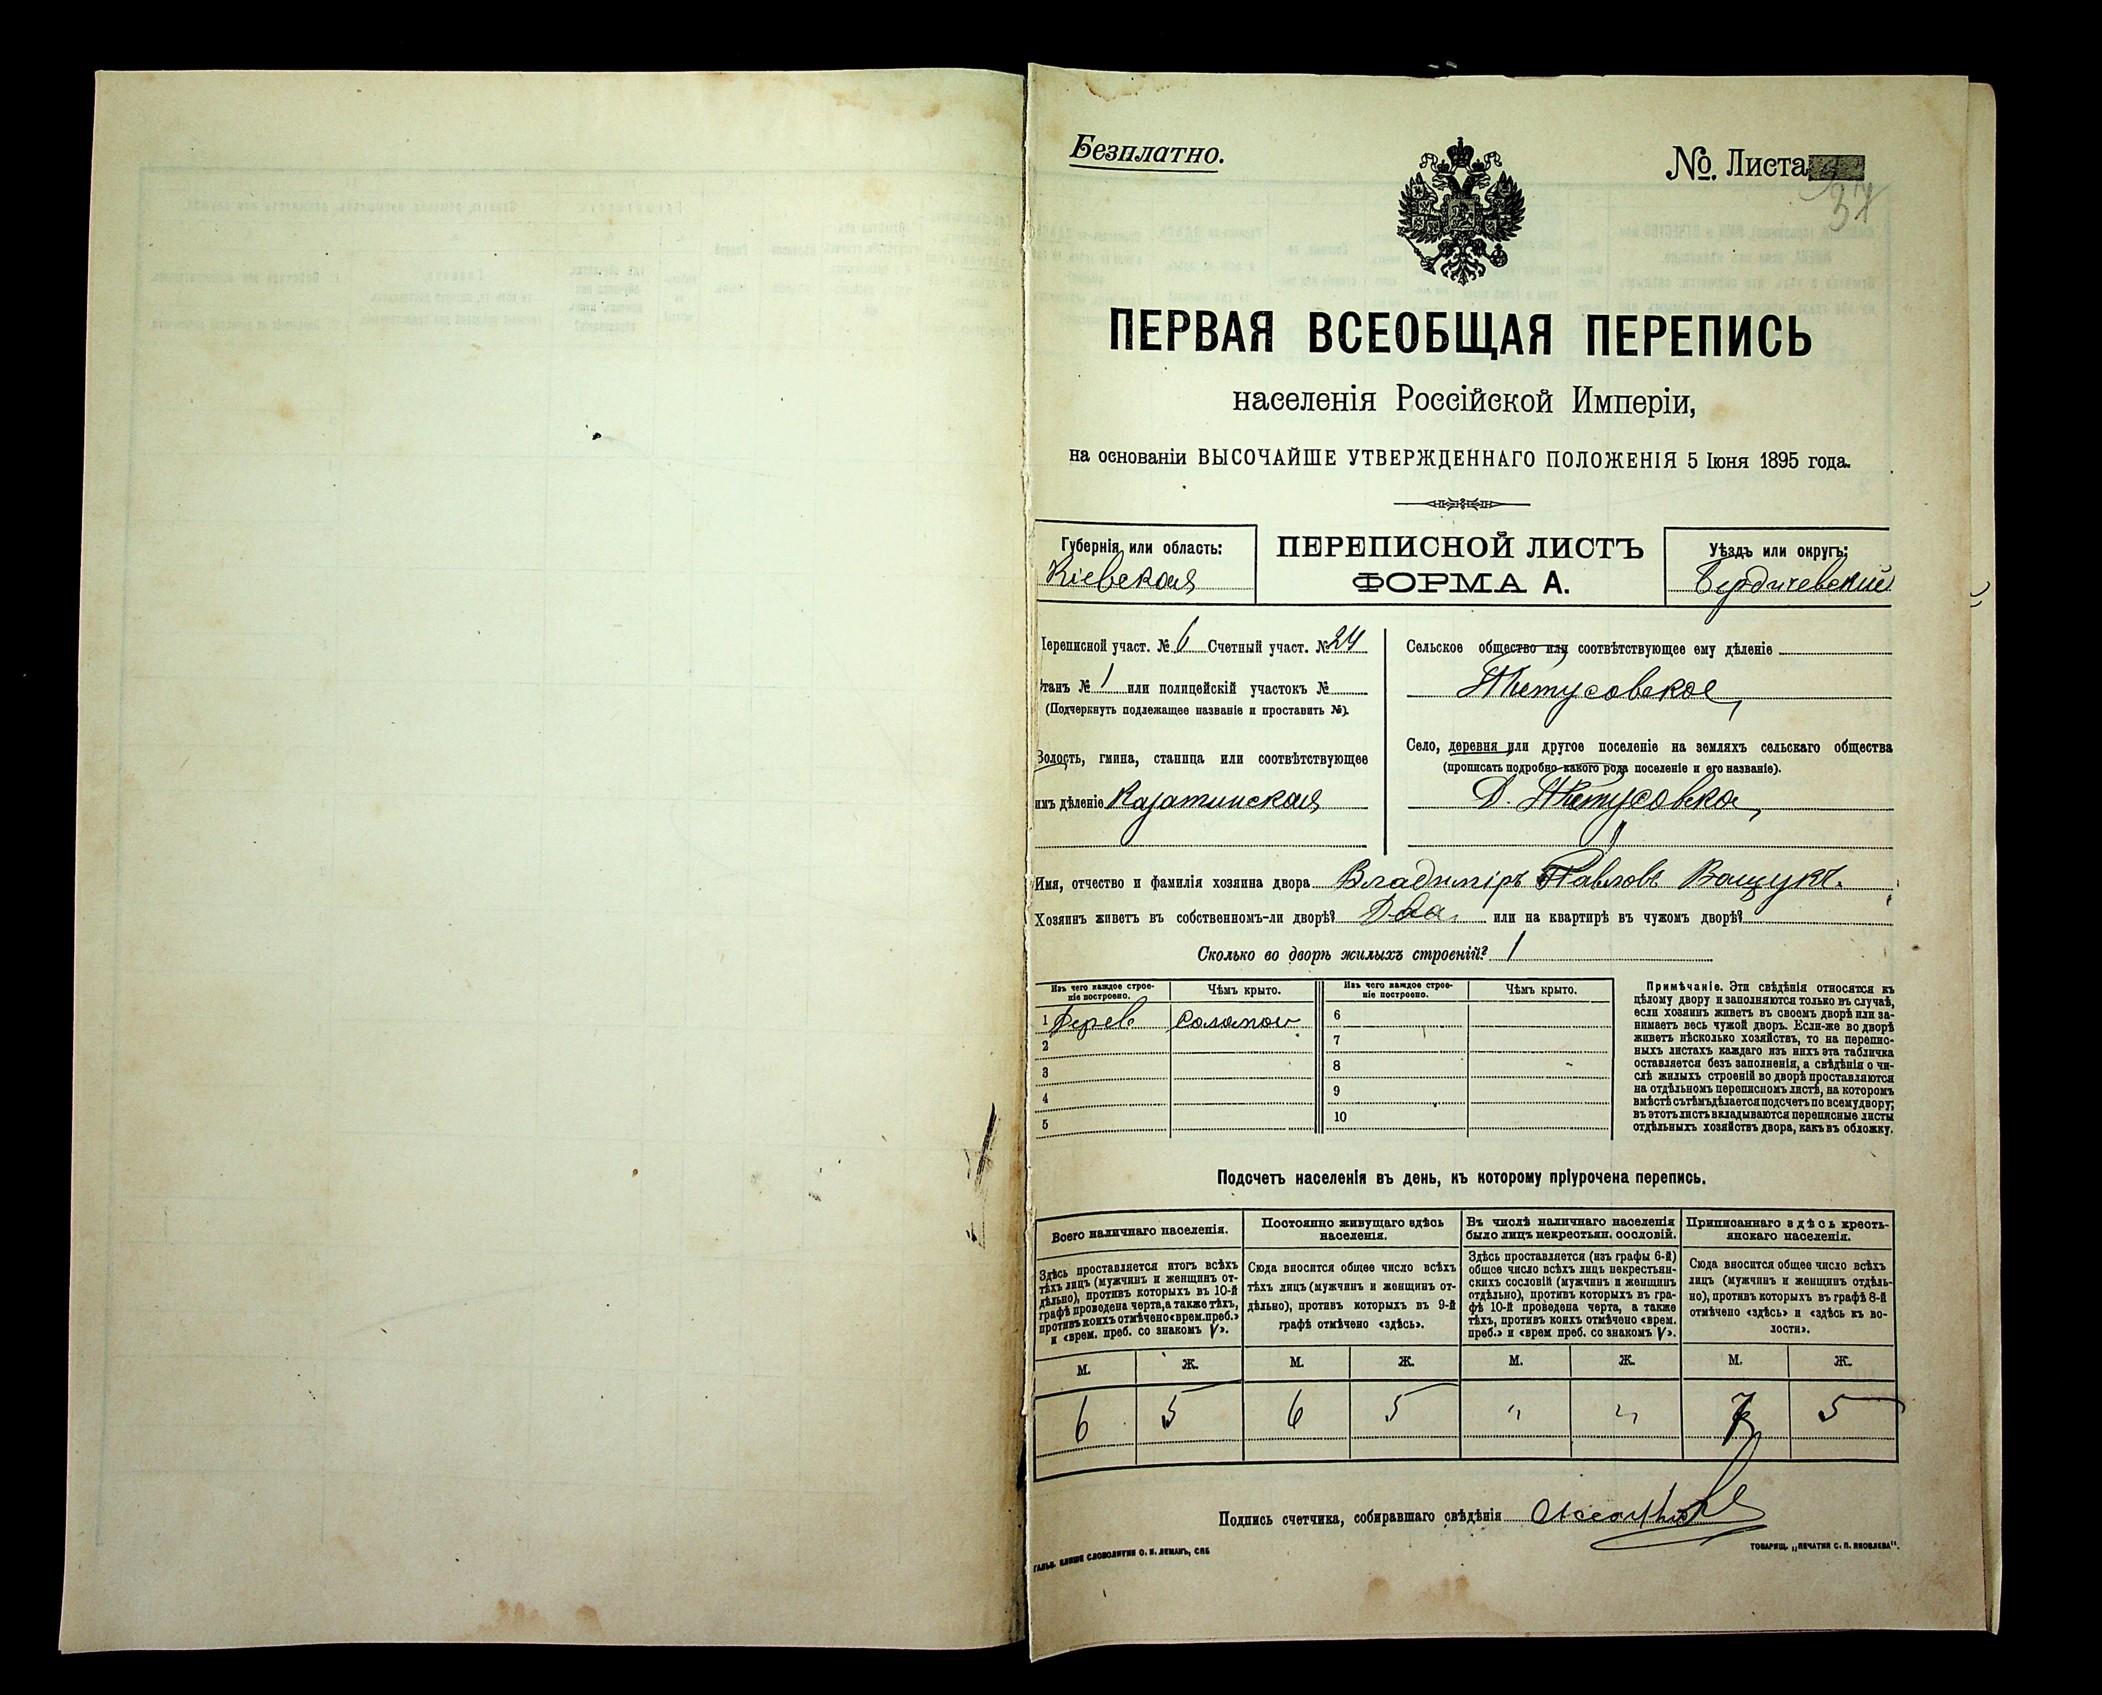 Безплатно.
№. Листа
37
ПЕРВАЯ ВСЕОБЩАЯ ПЕРЕПИСЬ
населенія Россійской Имперіи,
на основаніи ВЫСОЧАЙШЕ УТВЕРЖДЕННАГО ПОЛОЖЕНІЯ 5 Іюня 1895 года.
Губернія или область:
Кіевская
ПЕРЕПИСНОЙ ЛИСТЪ
ФОРМА А.
Уѣздъ или округъ:
Бердичевскій
Переписной участ. № 6 Счетный участ. № 24
Станъ № 1 или полицейскій участокъ №
(Подчеркнуть подлежащее названіе и проставить №).
Волость, гмина, станица или соотвѣтствующее
имъ дѣленіе Казатинская
Сельское общество или соотвѣтствующее ему дѣленіе
Титусовское
Село, деревня или другое поселеніе на земляхъ сельскаго общества
(прописать подробно какого рода поселеніе и его названіе).
Д. Титусовка
Имя, отчество и фамилія хозяина двора Владиміръ Павловъ Ващукъ.
Хозяинъ живетъ въ собственномъ-ли дворѣ? Да или на квартирѣ въ чужомъ дворѣ?
Сколько во дворѣ жилыхъ строеній? 1
Изъ чего каждое строе-
ніе построено.
Чѣмъ крыто.
Изъ чего каждое строе-
ніе построено.
Чѣмъ крыто.
1 Дерев Соломою
2
3
4
5
6
7
8
9
10
Примѣчаніе. Эти свѣдѣнія относятся къ
цѣлому двору и заполняются только въ случаѣ,
если хозяинъ живетъ въ своемъ дворѣ или за-
нимаетъ весь чужой дворъ. Если-же во дворѣ
живетъ нѣсколько хозяйствъ, то на перепис-
ныхъ листахъ каждаго изъ нихъ эта табличка
оставляется безъ заполненія, а свѣдѣнія о чи-
слѣ жилыхъ строеній во дворѣ проставляются
на отдѣльномъ переписномъ листѣ, на которомъ
вмѣстѣ съ тѣмъ дѣлается подсчетъ по всему двору;
въ этотъ листъ вкладываются переписные листы
отдѣльныхъ хозяйствъ двора, какъ въ обложку.
Подсчетъ населенія въ день, къ которому пріурочена перепись.
Всего наличнаго населенія.
Здѣсь проставляется итогъ всѣхъ
тѣхъ лицъ (мужчинъ и женщинъ от-
дѣльно), противъ которыхъ въ 10-й
графѣ проведена черта, а также тѣхъ,
противъ коихъ отмѣчено «врем. преб.»
и «врем. преб. со знакомъ V».
Постоянно живущаго здѣсь
населенія.
Сюда вносится общее число всѣхъ
тѣхъ лицъ (мужчинъ и женщинъ от-
дѣльно), противъ которыхъ въ 9-й
графѣ отмѣчено «здѣсь».
Въ числѣ наличнаго населенія
было лицъ некрестьян. сословій.
Здѣсь проставляется (изъ графы 6-й)
общее число всѣхъ лицъ некрестьян-
скихъ сословій (мужчинъ и женщинъ
отдѣльно), противъ которыхъ въ гра-
фѣ 10-й проведена черта, а также
тѣхъ, противъ коихъ отмѣчено «врем.
преб.» и «врем преб. со знакомъ V».
Приписаннаго здѣсь кресть-
янскаго населенія.
Сюда вносится общее число всѣхъ
лицъ (мужчинъ и женщинъ отдѣль-
но), противъ которыхъ въ графѣ 8-й
отмѣчено «здѣсь» и «здѣсь къ во-
лости».
М. Ж. М. Ж. М. Ж. М. Ж.
6 5 6 5 " " 7 5
Подпись счетчика, собиравшаго свѣдѣнія
ГАЛЬВ. КЛИШЕ СЛОВОЛИТНИ О. И. ЛЕМАНЪ, СПБ
ТОВАРИЩ. „ПЕЧАТНЯ С. П. ЯКОВЛЕВА".